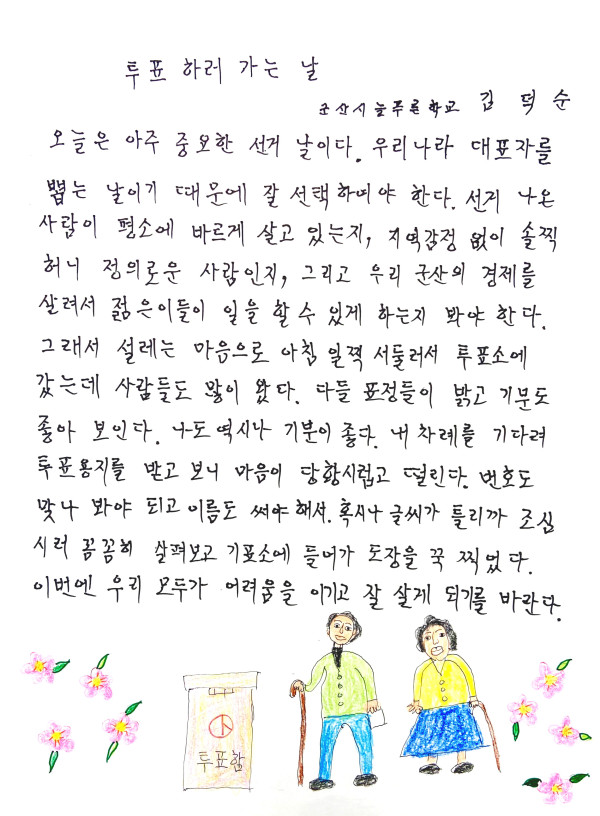 투표 하러 가는 날
군산시늘푸른학교 김덕순
오늘은 아주 중요한 선거 날이다. 우리나라 대표자를
뽑는 날이기 때문에 잘 선택하여야 한다. 선거 나온
사람이 평소에 바르게 살고 있는지, 지역감정 없이 솔찍
허니 정의로운 사람인지, 그리고 우리 군산의 경제를
살려서 젊은이들이 일을 할 수 있게 하는지 봐야 한다.
그래서 설레는 마음으로 아침 일찍 서둘러서 투표소에
갔는데 사람들도 많이 왔다. 다들 표정들이 밝고 기분도
좋아 보인다. 나도 역시나 기분이 좋다. 내 차례를 기다려
투표용지를 받고 보니 마음이 당황시럽고 떨린다. 번호도
맞나 봐야 되고 이름도 써야 해서. 혹시나 글씨가 틀리까 조심
시러 꼼꼼히 살펴보고 기표소에 들어가 도장을 꾹 찍었다.
이번엔 우리 모두가 어려움을 이기고 잘 살게 되기를 바란다.
투표함